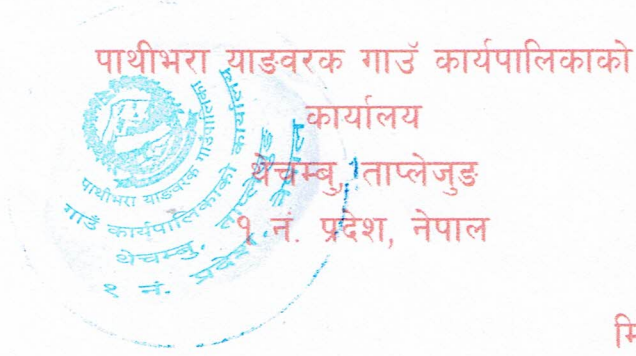 पाथीभरा याङवरक गाउँ कार्यपालिकाको
कार्यालय
थेचम्बु, ताप्लेजुङ
१ नं. प्रदेश, नेपाल
पाथीभरा याङवरक गाउँपालिका
गाउँ कार्यपालिकाको कार्यालय
थेचम्बु, ताप्लेजुङ
१ नं. प्रदेश, नेपाल
मि